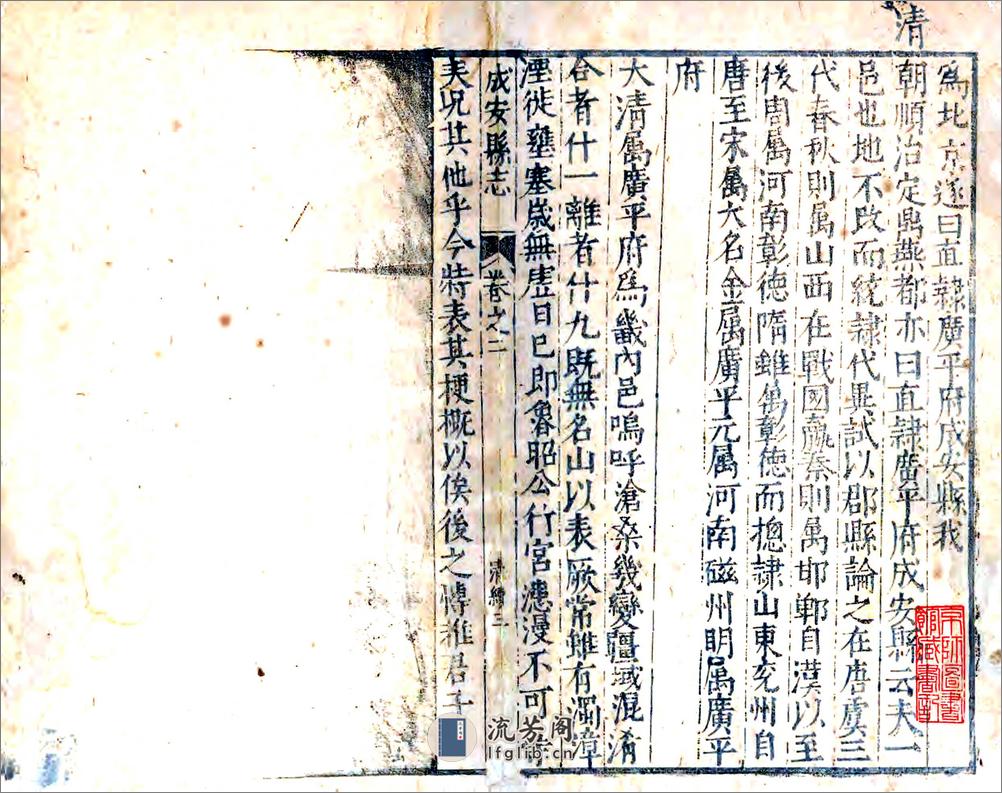 清
爲北京遂曰直隸廣平府成安縣我
朝順治定鼎燕都亦曰直隸廣平府成安縣云夫一
邑也地不改而統隸代異試以郡縣論之在唐虞三
代春秋則属山西在戰國嬴秦則属邯鄲自漢以至
後周属河南彰德隋雖属彰德而摠隸山東兖州自
唐至宋属大名金属廣平元属河南磁州明属廣平
府
大清属廣平府爲畿内邑嗚呼滄桑幾變疆域混淆
合者什一離者什九既無名山以表厥常雖有濁漳
湮徙壅塞歳無虚日巳即魯昭公行宮漶漫不可
成安縣志
卷之二
清續 三
夫况其他乎今特表其梗概以俟後之博雅君子
流芳阁
lfglib.cn